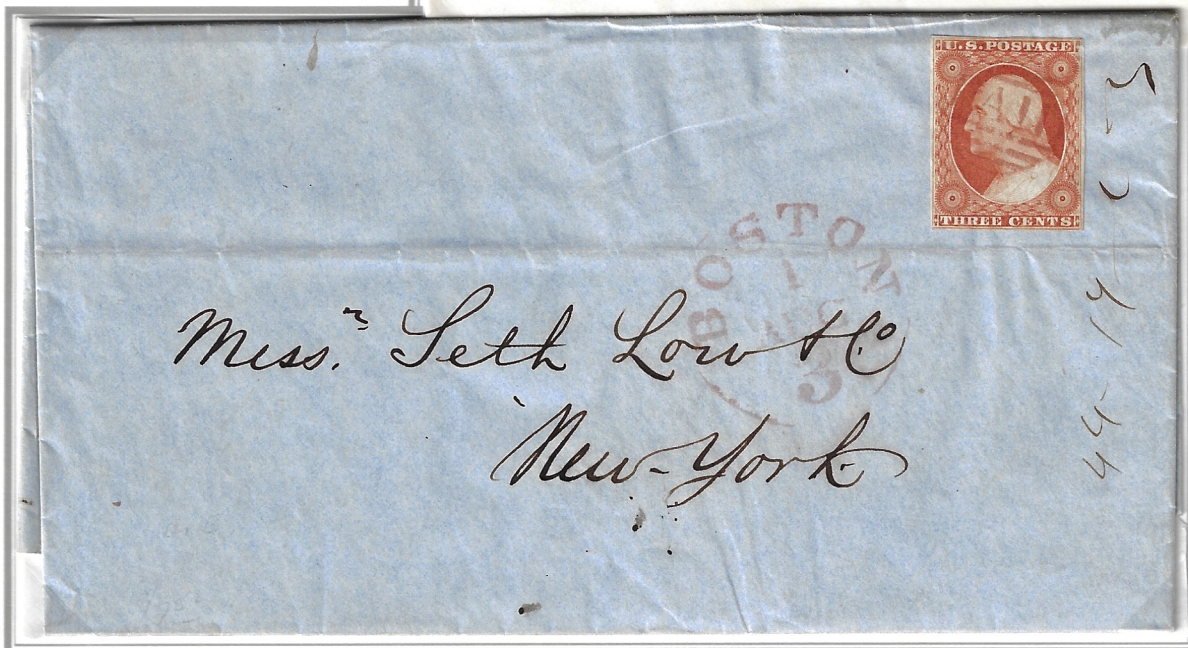 U.S. POSTAGE
THREE CENTS
BOSTON
1
3
Mess.rs Seth Low & Co
New-York.